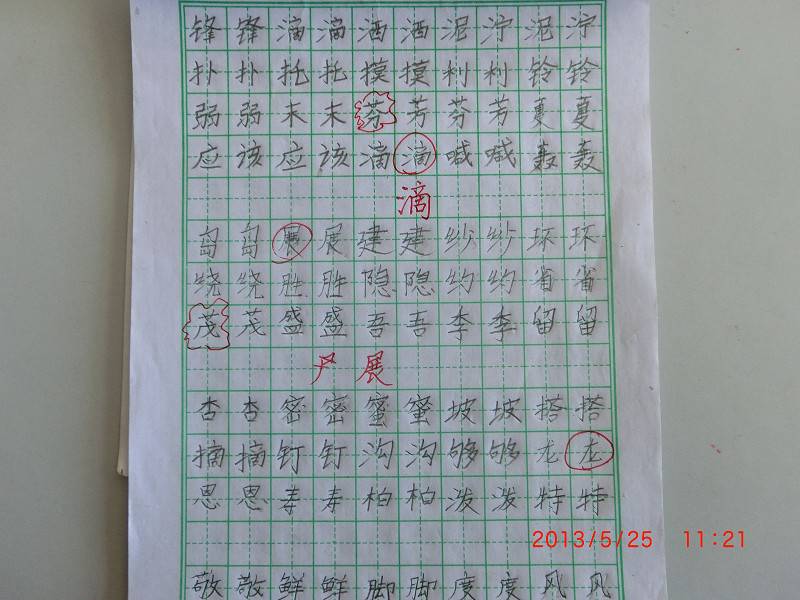 锋锋滴滴洒洒泥泞泥泞
扑扑托托摸摸利利铃铃
弱弱末末芬芳芬芳夏夏
应该应该滴滴喊喊轰轰
滴
岛岛展展建建纱纱环环
绕绕胜胜隐隐约约省省
茂茂盛盛吾吾李李留留
尸展
杏杏密密蜜蜜坡坡搭搭
摘摘钉钉沟沟够够龙龙
恩恩寿寿柏柏泼泼特特
2013/5/25 11:21
敬敬鲜鲜脚脚度度风风